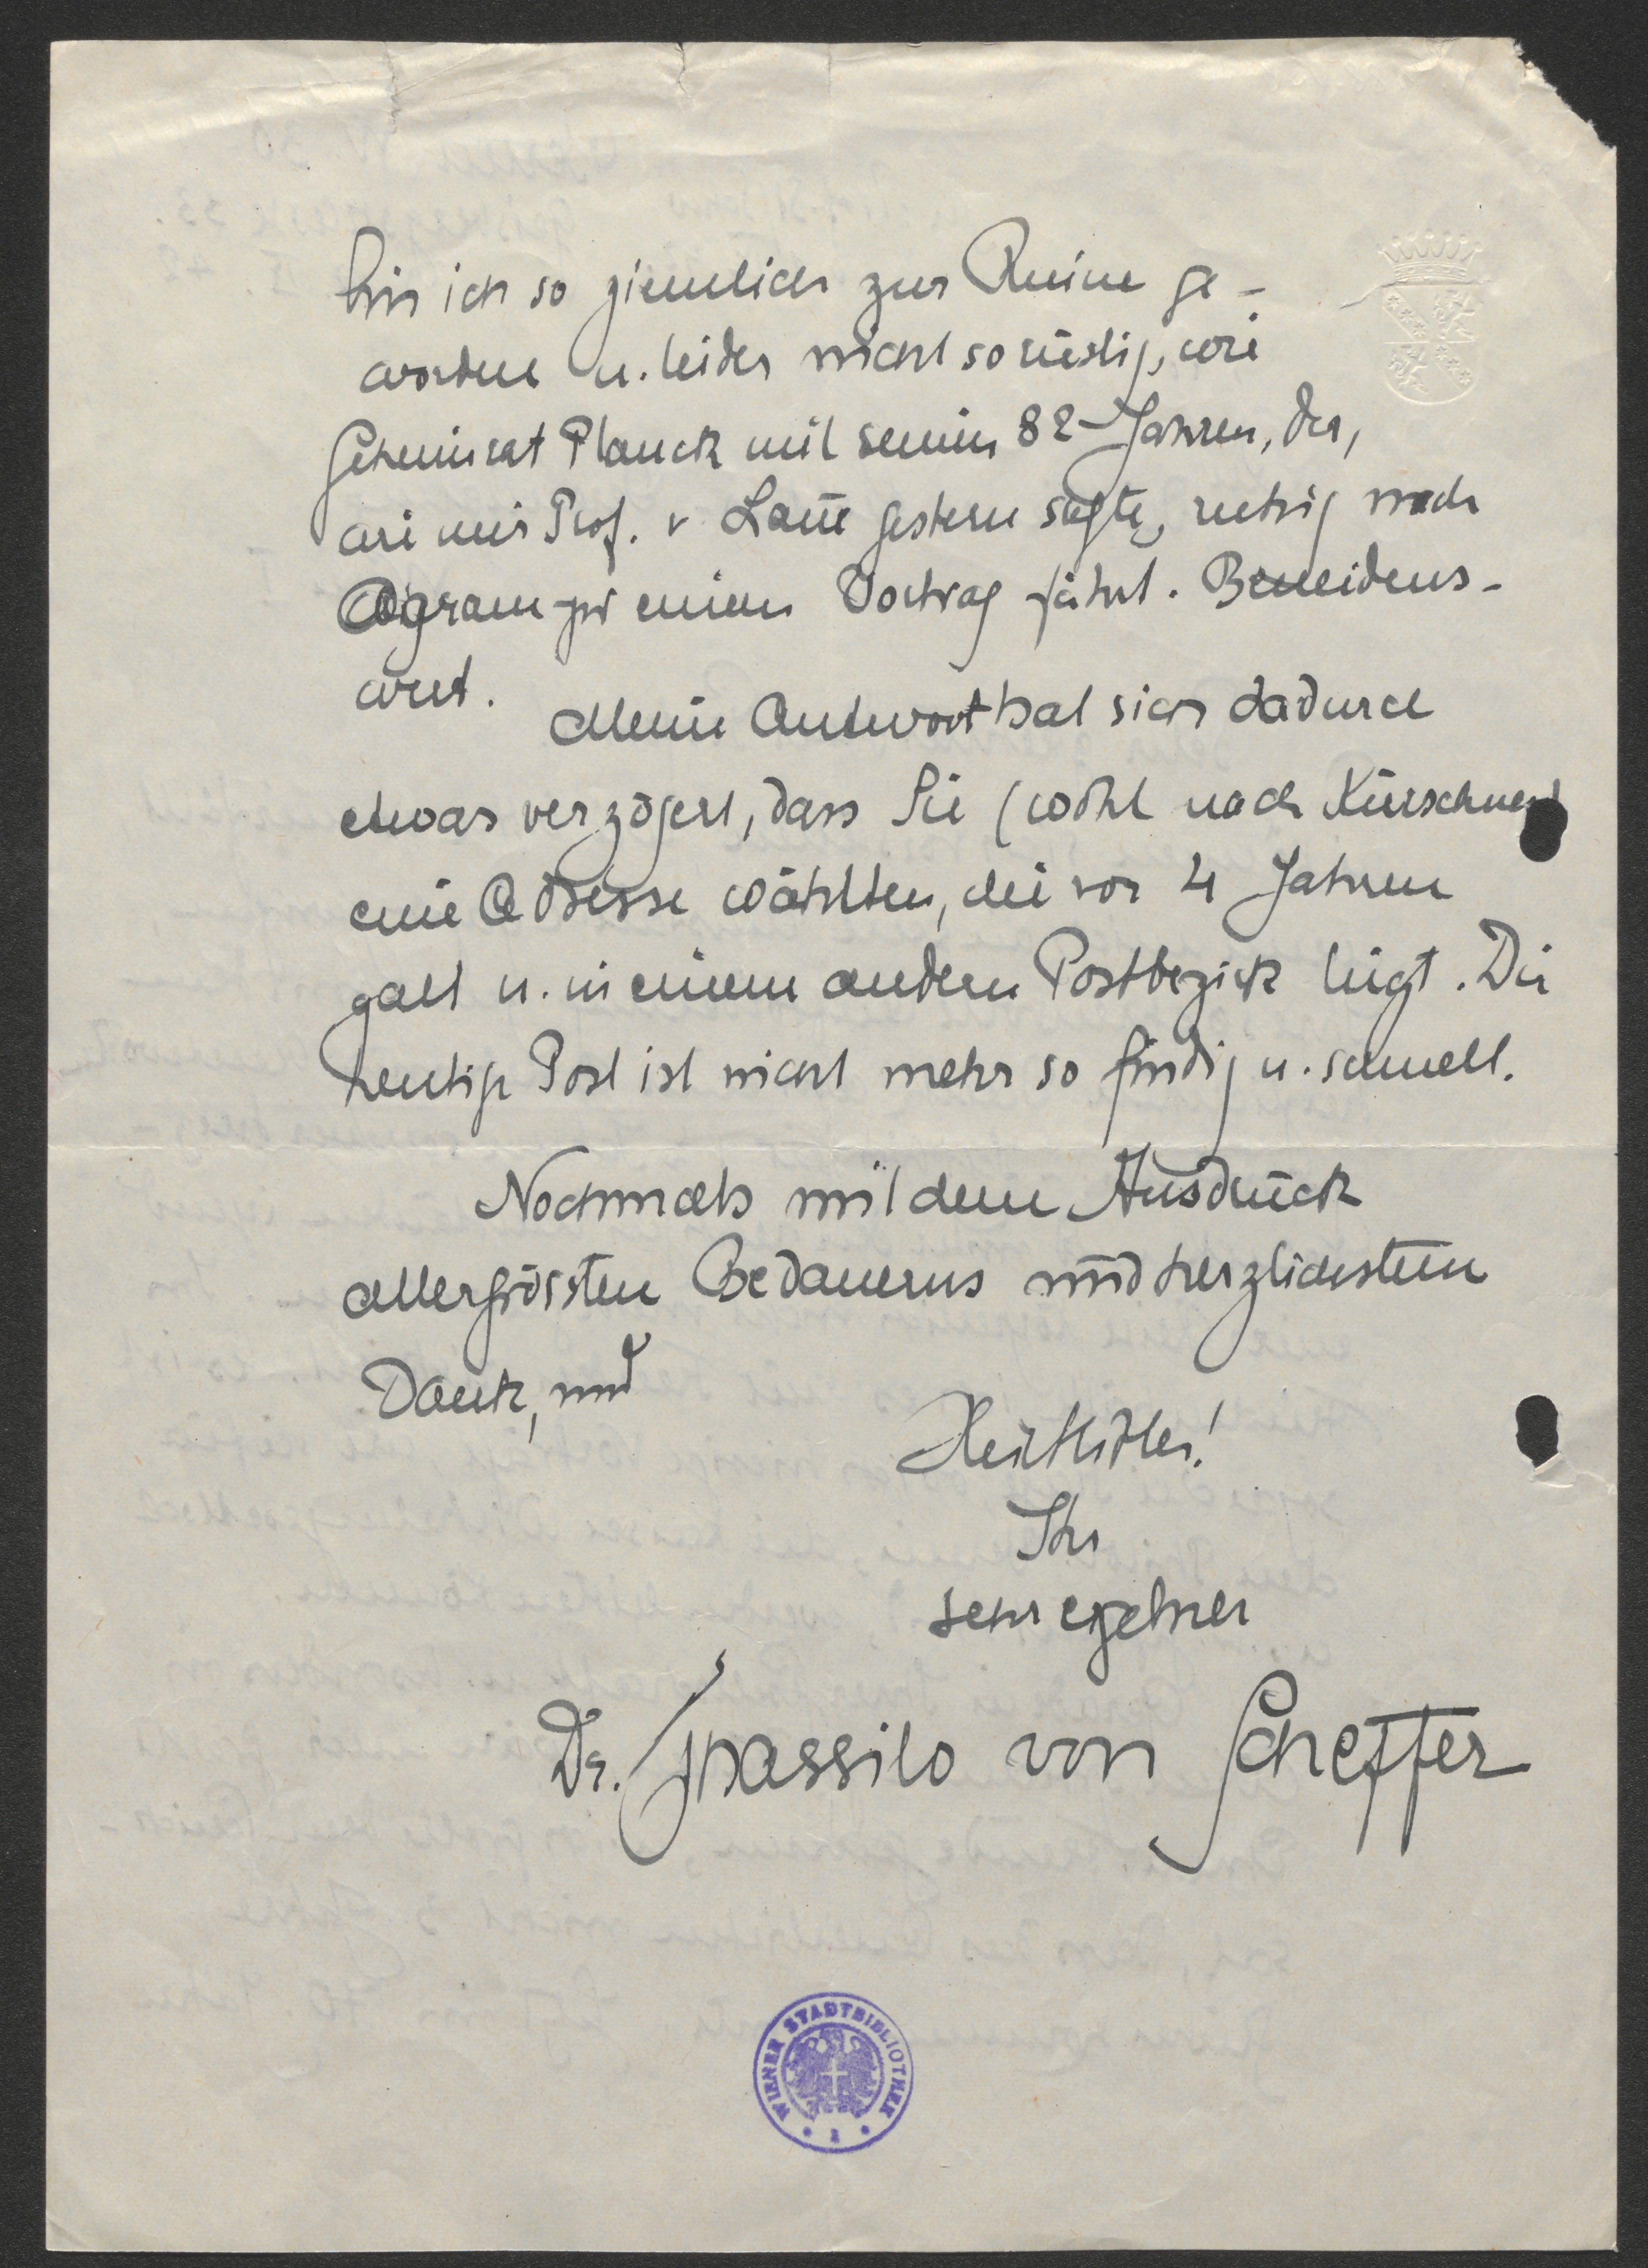 bin ich so ziemlich zur Ruine ge-
worden u. leider nicht so rüstig, wie
Geheimrat Planck mit seinen 82 Jahren, der,
wie mir Prof. v Laue gestern sagte, ruhig nach
Agram zu einem Vortrag fährt. Beneidens-
wert.
Meine Antwort hat sich dadurch
etwas verzögert, dass Sie (wohl nach Kürschner)
eine Adresse wählten, die vor 4 Jahren
galt u. in einem andern Postbezirk liegt. Die
heutige Post ist nicht mehr so findig u. schnell.
Nochmals mit dem Ausdruck
allergrössten Bedauerns und herzlichstem
Dank, und
Heil Hitler!
Ihr
sehr ergebner
Dr. Thassilo von Scheffer
WIENER STADTBIBLIOTHEK
* 1 *